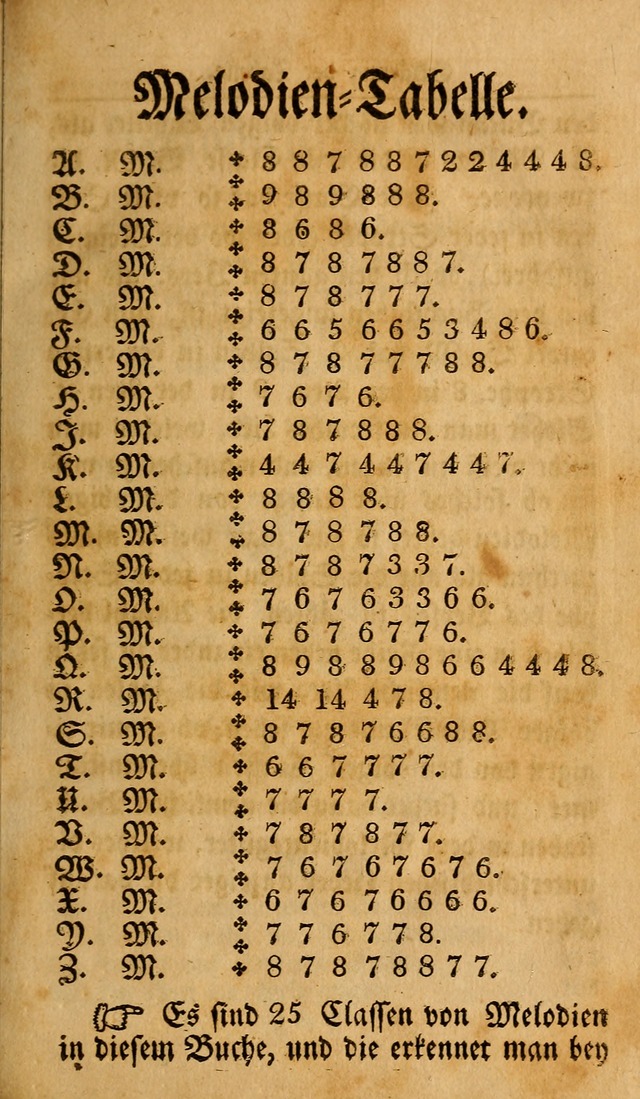 Melodien-Tabelle.
A. M. 8 8 7 8 8 7 2 2 4 4 4 8.
B. M. 9 8 9 8 8 8.
C. M. 8 6 8 6.
D. M. 8 7 8 7 8 8 7.
E. M. 8 7 8 7 7 7.
F. M. 6 6 5 6 6 5 3 4 8 6.
G. M. 8 7 8 7 7 7 8 8.
H. M. 7 6 7 6.
J. M. 7 8 7 8 8 8.
K. M. 4 4 7 4 4 7 4 4 7.
L. M. 8 8 8 8.
M. M. 8 7 8 7 8 8.
N. M. 8 7 8 7 3 3 7.
O. M. 7 6 7 6 3 3 6 6.
P. M. 7 6 7 6 7 7 6.
Q. M. 8 9 8 8 9 8 6 6 4 4 4 8.
R. M. 14 14 4 7 8.
S. M. 8 7 8 7 6 6 8 8.
T. M. 6 6 7 7 7 7.
U. M. 7 7 7 7.
V. M. 7 8 7 8 7 7.
W. M. 7 6 7 6 7 6 7 6.
X. M. 6 7 6 7 6 6 6 6.
Y. M. 7 7 6 7 7 8.
Z. M. 8 7 8 7 8 8 7 7.
☞ Es sind 25 Classen von Melodien
in diesem Buche, und die erkennet man bey